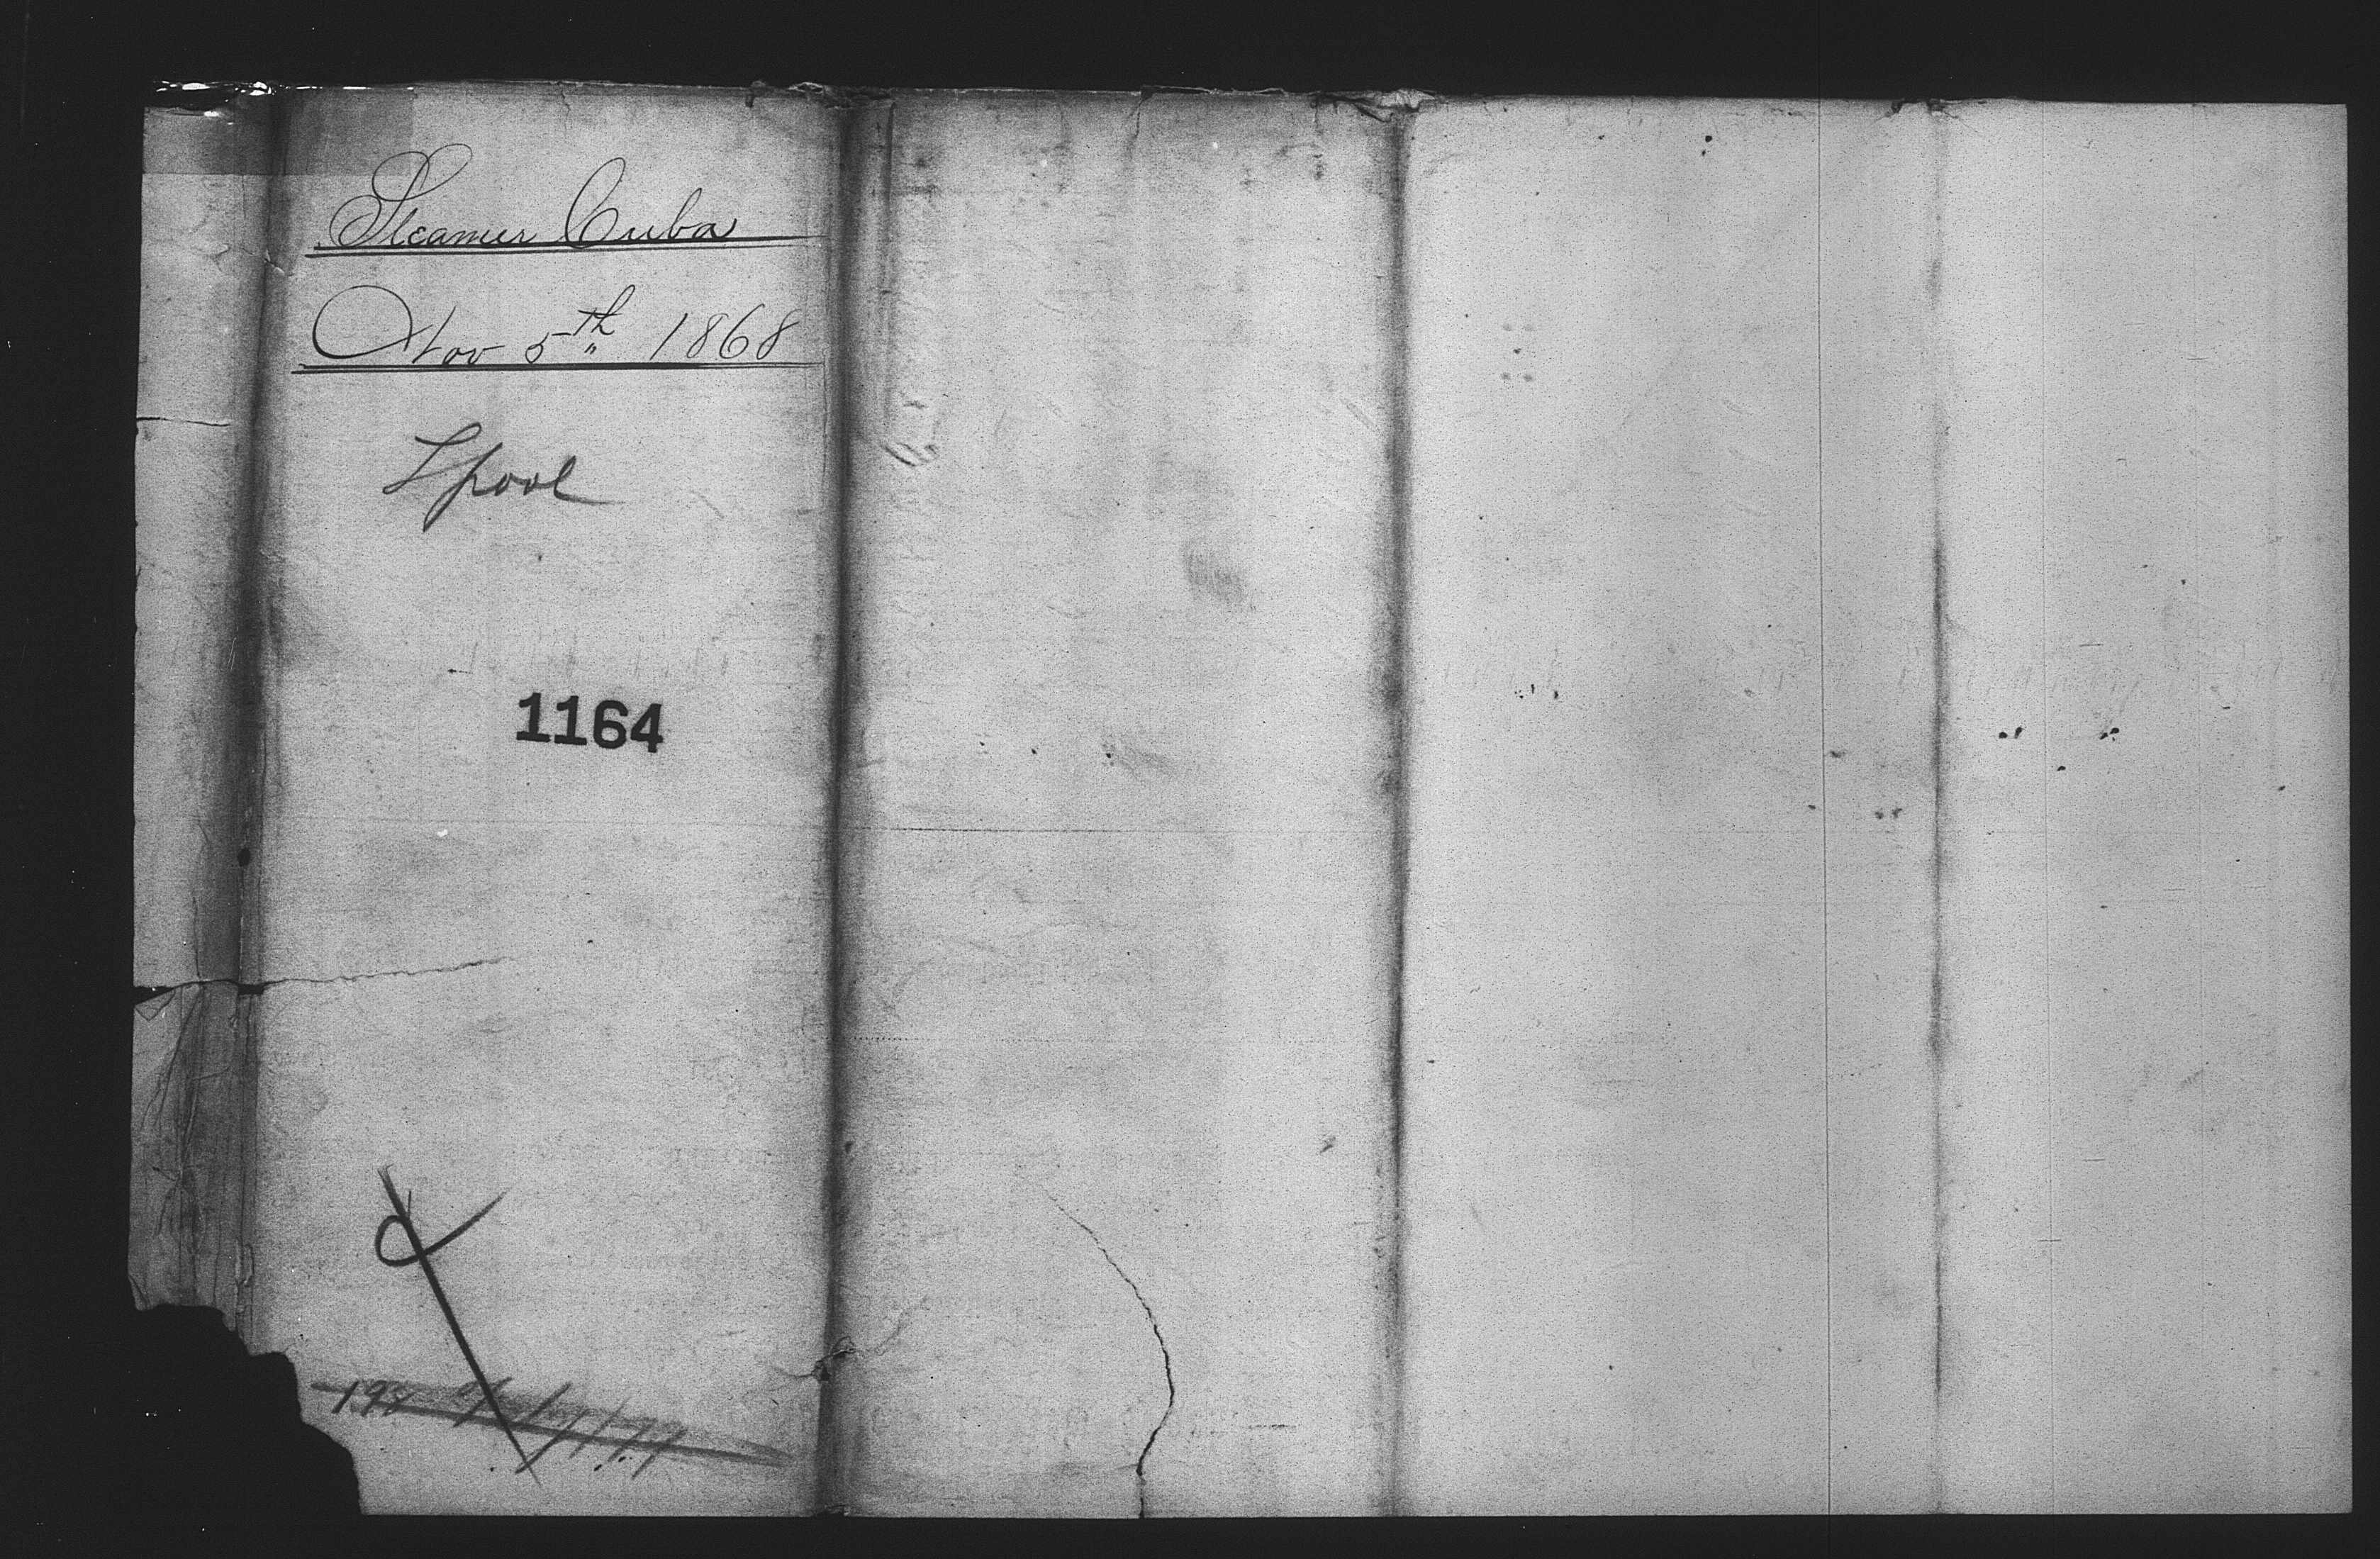 Steamer Cuba
Nov 5th 1868
Lpool
1164